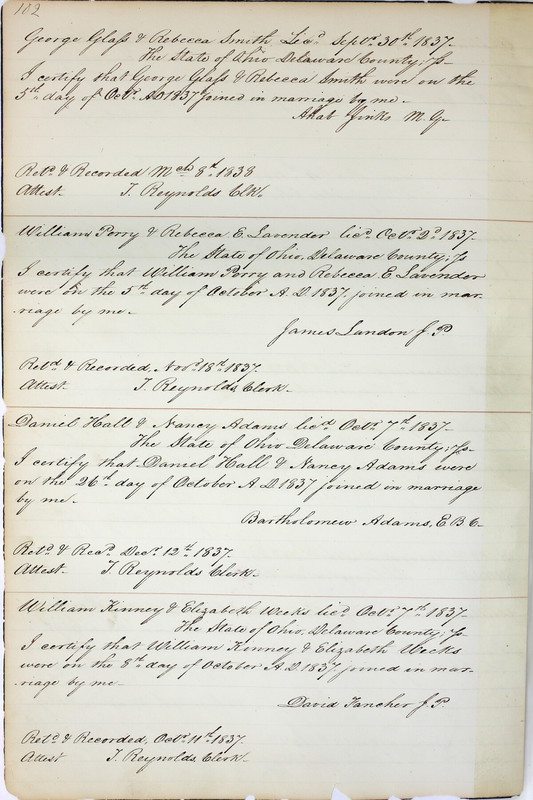 102
George Glass & Rebecca Smith Licd. Septr. 30th. 1837.
The State of Ohio Delaware County; Ss-
I certify that George Glass & Rebecca Smith were on the
5th. day of Octr. AD 1837 joined in marriage by me-
Ahab Jinks M.G.
Retd. & Recorded Mch 8th. 1838
Attest. T. Reynolds Clk.
William Perry & Rebecca E. Lavender licd. Octr. 2d. 1837.
The State of Ohio, Delaware County; Ss
I certify that William Perry and Rebecca E Lavender
were on the 5th. day of October A.D. 1837. joined in mar-
riage by me-
James Landon J.P
Retd. & Recorded, Novr. 18th. 1837.
Attest. T. Reynolds, Clerk-
Daniel Hall & Nancy Adams licd. Octr. 7th. 1837-
The State of Ohio Delaware County; Ss-
I certify that Daniel Hall & Nancy Adams were
on the 26th. day of October A.D. 1837 joined in marriage
by me-
Bartholomew Adams, E B C-
Retd. & Recd. Decr. 12th. 1837.
Attest- T. Reynolds Clerk-
William Kinney & Elizabeth Weeks licd. Octr. 7th. 1837-
The State of Ohio, Delaware County; Ss-
I certify that William Kinney & Elizabeth Weeks
were on the 8th. day of October A.D. 1837 joined in mar-
riage by me-
David Fancher J.P.
Retd. & Recorded, Octr. 11th. 1837.
Attest T. Reynolds, Clerk-